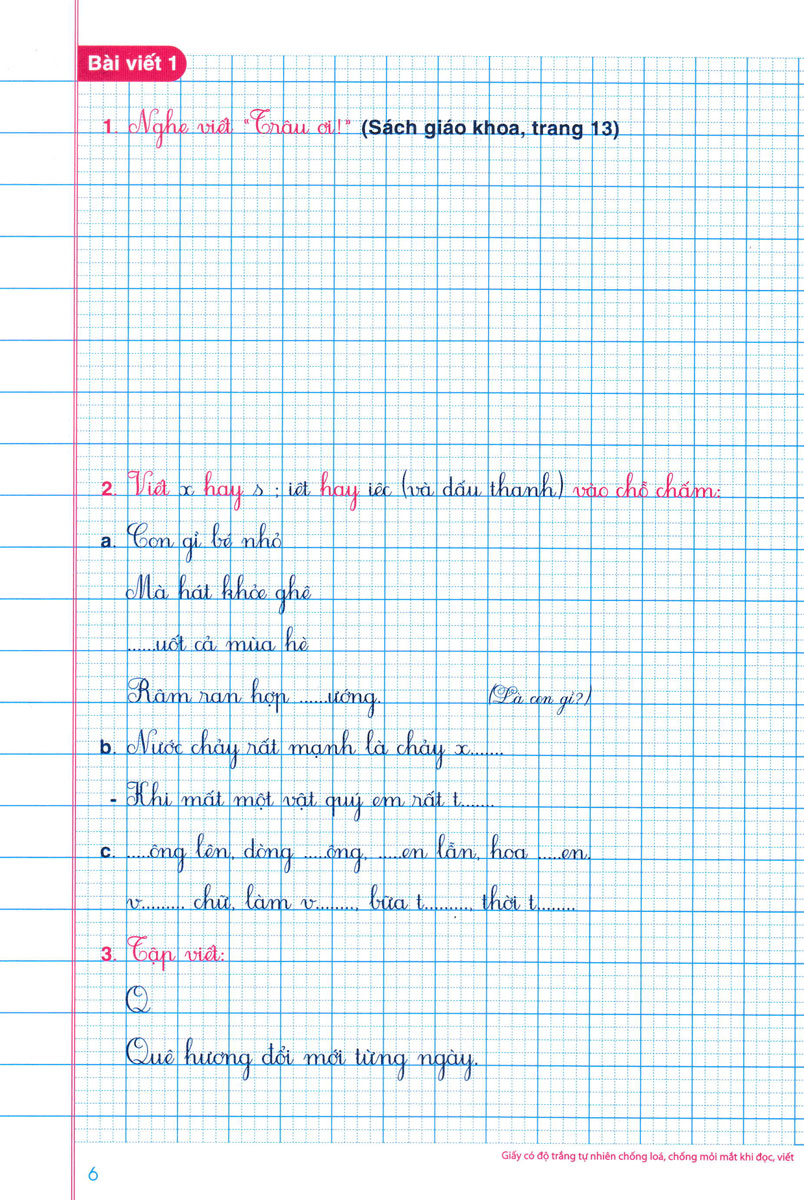 Bài viết 1
1. Nghe viết "Trâu ơi!" (Sách giáo khoa, trang 13)
2. Viết x hay s ; iêt hay iêc (và dấu thanh) vào chỗ chấm:
a. Con gì bé nhỏ
Mà hát khỏe ghê
......uốt cả mùa hè
Râm ran hợp ......ướng. (Là con gì?)
b. Nước chảy rất mạnh là chảy x.......
- Khi mất một vật quý em rất t.......
c. .....ông lên, dòng .....ông, .....en lẫn, hoa .....en,
v......... chữ, làm v........., bữa t.........., thời t........
3. Tập viết:
Q
Quê hương đổi mới từng ngày.
Giấy có độ trắng tự nhiên chống loá, chống mỏi mắt khi đọc, viết
6